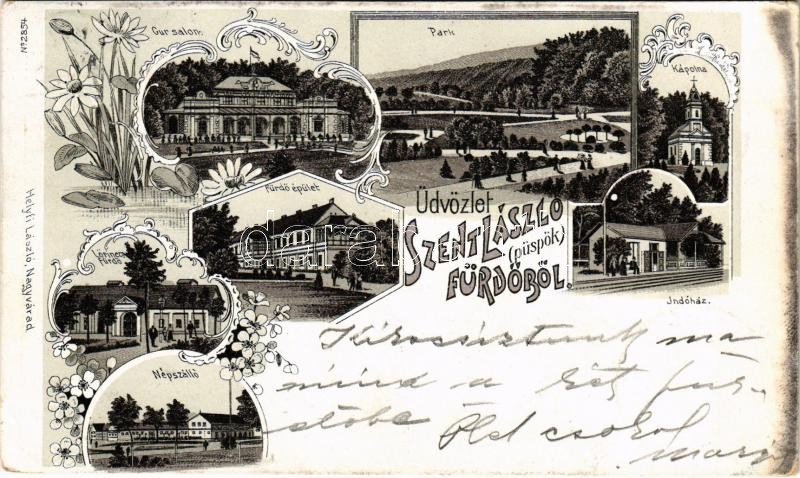 No 2854.
Cur salon.
Park
Kápolna
Fürdő épület
Üdvözlet
SZENT LÁSZLÓ
(püspök)
FÜRDŐBŐL.
fürdő
Indóház.
Népszálló
Helyfi László, Nagyvárad
ma
mind a két für-
dőbe
Ölel csókol